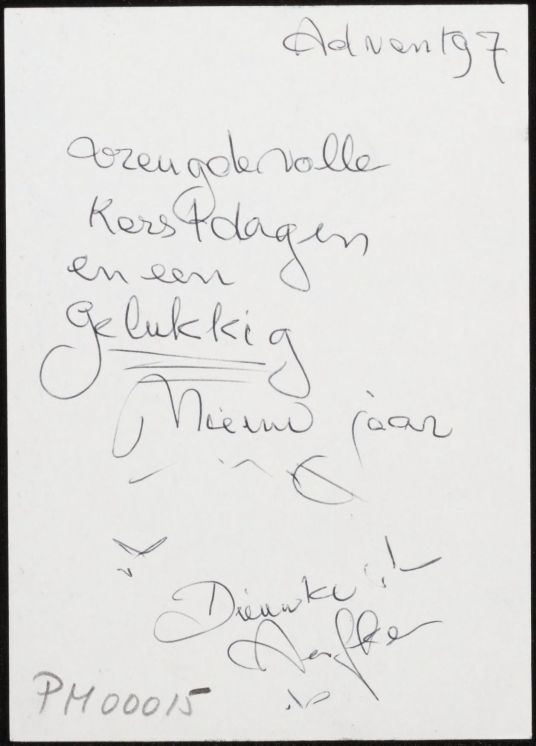 Advent 97
vreugdevolle
Kerstdagen
en een
gelukkig
Nieuw jaar
Dieuwke
PM00015